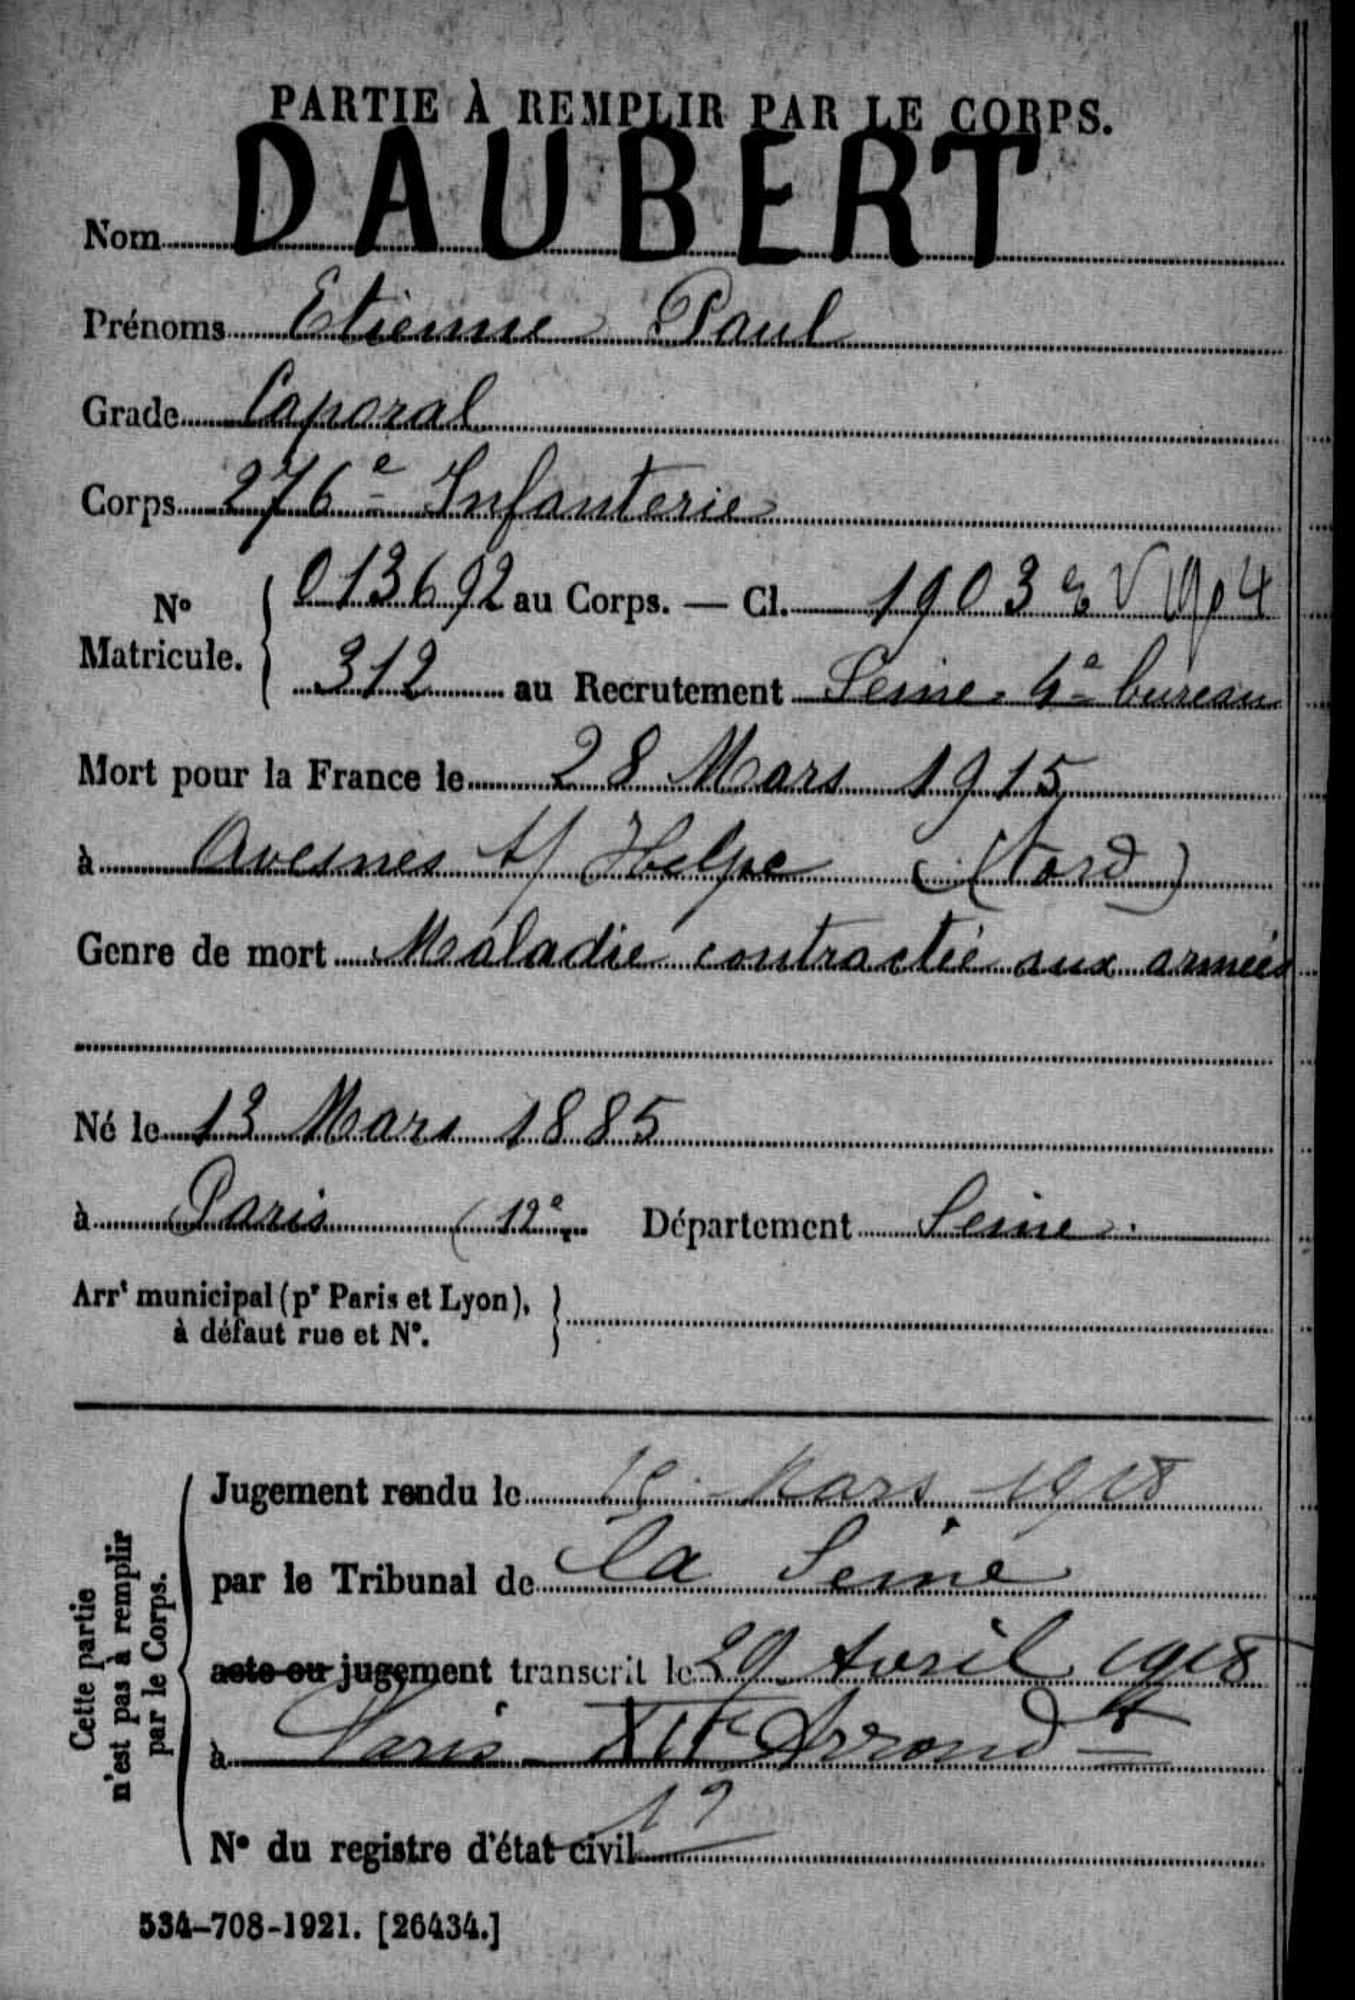 PARTIE À REMPLIR PAR LE CORPS.
Nom DAUBERT
Prénoms Etienne Paul
Grade Caporal
Corps 276e Infanterie
No Matricule. 013692 au Corps. — Cl. 1903 EV 1904
312 au Recrutement Seine 4e bureau
Mort pour la France le 28 Mars 1915
à Avesnes s/ Helpe (Nord)
Genre de mort Maladie contractée aux armées
Né le 13 Mars 1885
à Paris (12e Département Seine.
Arrt municipal (pr Paris et Lyon),
à défaut rue et No.
Cette partie
n'est pas à remplir
par le Corps.
Jugement rendu le Mars 1918
par le Tribunal de la Seine
acte ou jugement transcrit le 29 Avril 1918
à Paris Arrondt
No du registre d'état civil
534-708-1921. [26434.]